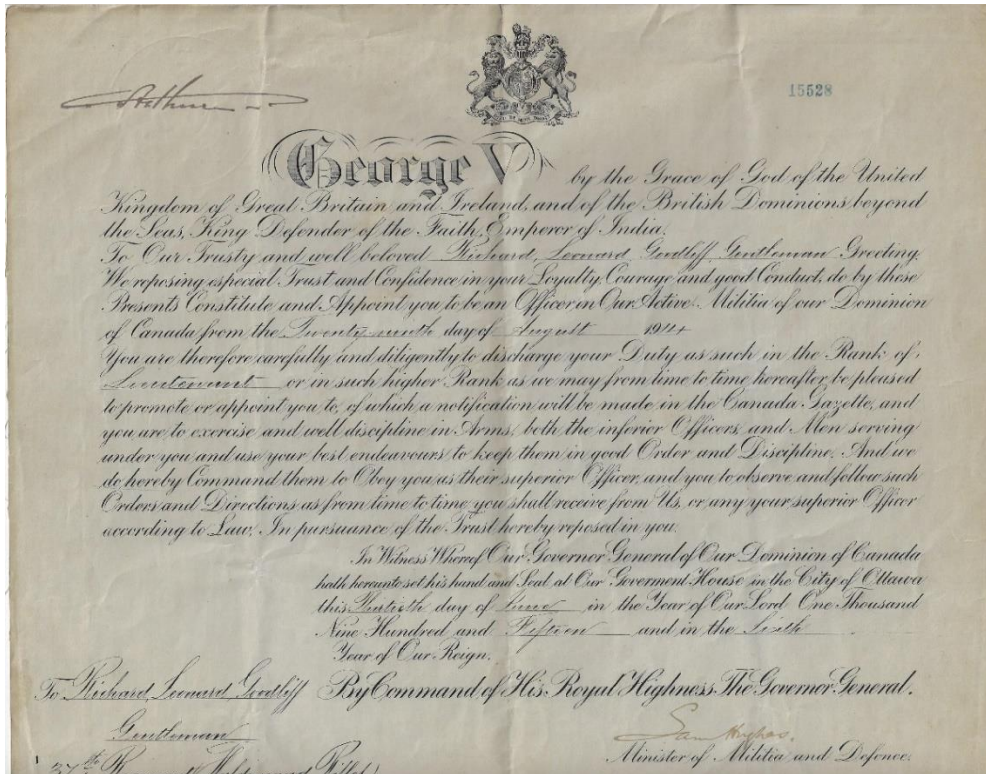 Arthur
15528
George V by the Grace of God of the United
Kingdom of Great Britain and Ireland, and of the British Dominions beyond
the Seas, King Defender of the Faith, Emperor of India.
To Our Trusty and well beloved Richard, Leonard Goodliff, Gentleman Greeting.
We reposing especial Trust and Confidence in your Loyalty, Courage and good Conduct, do by these
Presents Constitute and Appoint you to be an Officer in Our Active Militia of our Dominion
of Canada from the Twenty-ninth day of August 1914
You are therefore carefully and diligently to discharge your Duty as such in the Rank of
Lieutenant or in such higher Rank as we may from time to time hereafter be pleased
to promote or appoint you to, of which a notification will be made in the Canada Gazette, and
you are to exercise and well discipline in Arms, both the inferior Officers and Men serving
under you and use your best endeavours to keep them in good Order and Discipline. And we
do hereby Command them to Obey you as their superior Officer, and you to observe and follow such
Orders and Directions as from time to time you shall receive from Us, or any your superior Officer
according to Law, In pursuance of the Trust hereby reposed in you.
In Witness Whereof Our Governor General of Our Dominion of Canada
hath hereunto set his hand and Seal at Our Goverment House in the City of Ottawa
this Thirtieth day of June in the Year of Our Lord One Thousand
Nine Hundred and Fifteen and in the Sixth
Year of Our Reign.
To Richard Leonard Goodliff By Command of His Royal Highness The Governor General.
Gentleman
Sam Hughes.
Minister of Militia and Defence.
37th